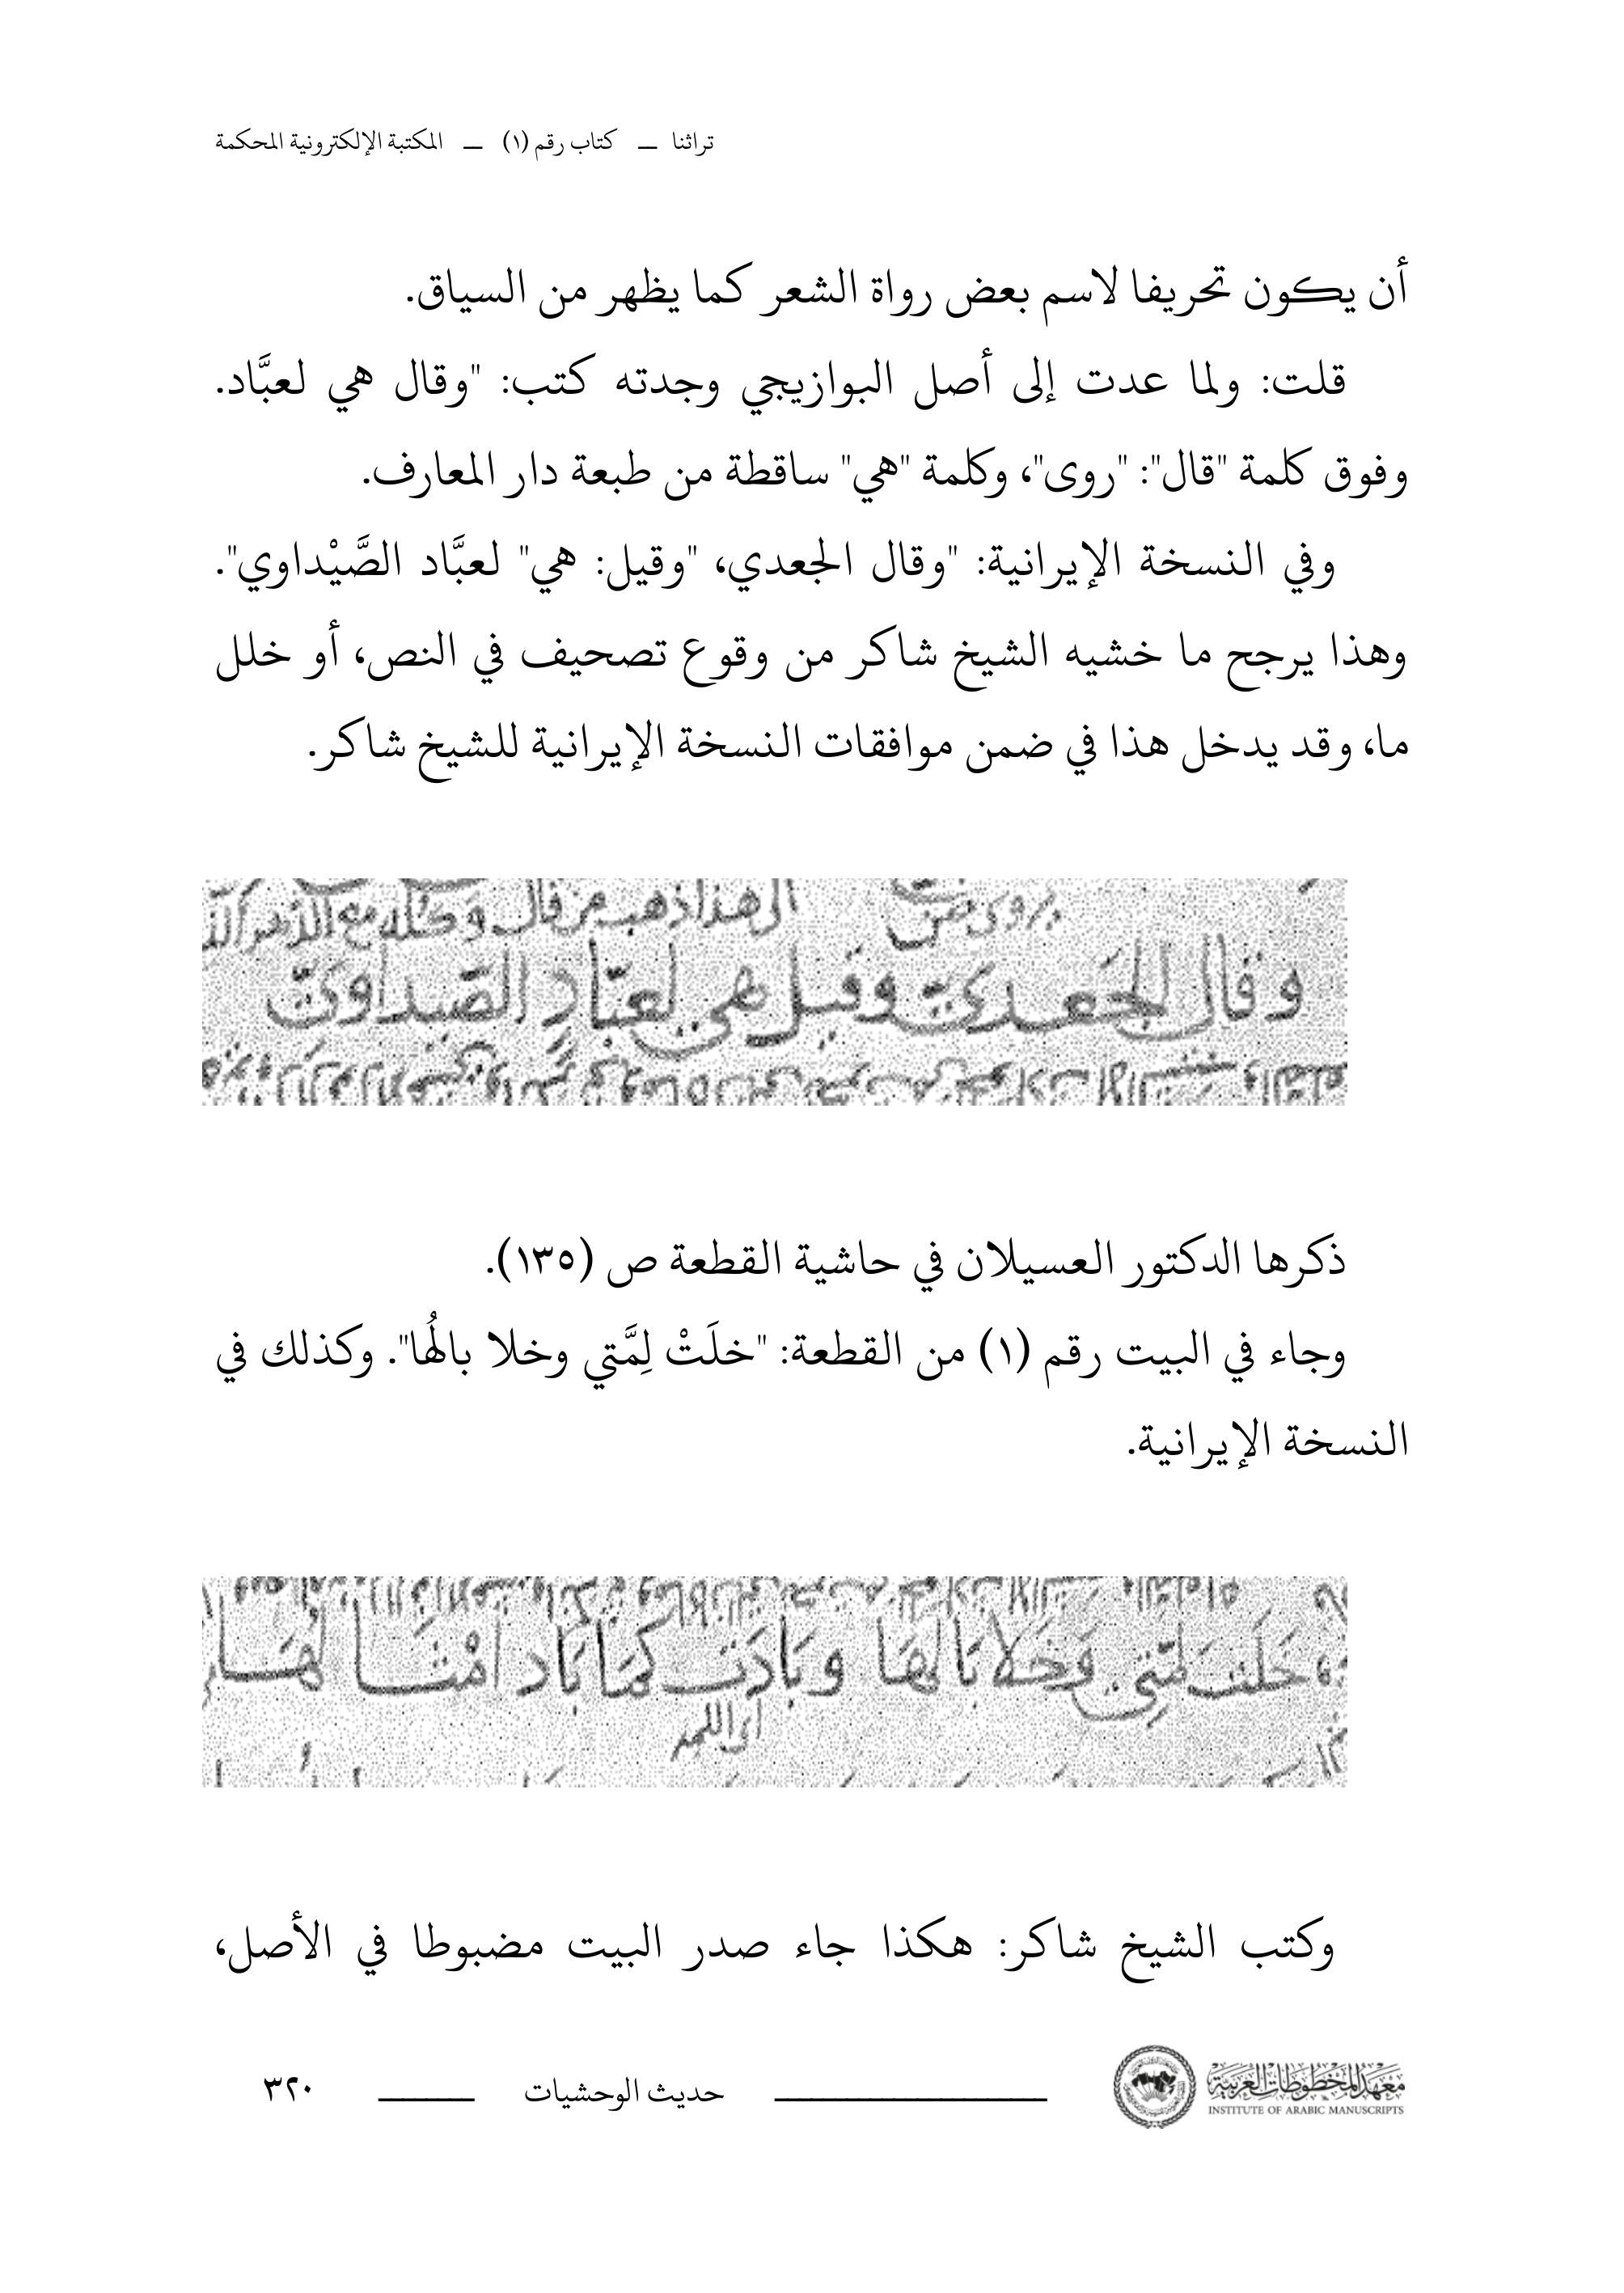 تراثنا — كتاب رقم (١) — المكتبة الإلكترونية المحكمة
أن يكون تحريفا لاسم بعض رواة الشعر كما يظهر من السياق.
قلت: ولما عدت إلى أصل البوازيجي وجدته كتب: "وقال هي لعبَّاد.
وفوق كلمة "قال": "روى"، وكلمة "هي" ساقطة من طبعة دار المعارف.
وفي النسخة الإيرانية: "وقال الجعدي، "وقيل: هي" لعبَّاد الصَّيْداوي".
وهذا يرجح ما خشيه الشيخ شاكر من وقوع تصحيف في النص، أو خلل
ما، وقد يدخل هذا في ضمن موافقات النسخة الإيرانية للشيخ شاكر.
الى هذا ذهب من قال وكله مع
وقال الجَعدىّ وقيل هى لعبّادٍ الصّيداوىّ
ذكرها الدكتور العسيلان في حاشية القطعة ص (١٣٥).
وجاء في البيت رقم (١) من القطعة: "خلَتْ لِمَّتي وخلا بالُها". وكذلك في
النسخة الإيرانية.
خَلَت لمّتى وَخَلا بَالهَا وبَادَت كمَا بَاد امْثَالهَا
اى اللمه
وكتب الشيخ شاكر: هكذا جاء صدر البيت مضبوطا في الأصل،
معهد المخطوطات العربية
INSTITUTE OF ARABIC MANUSCRIPTS
حديث الوحشيات
٣٢٠